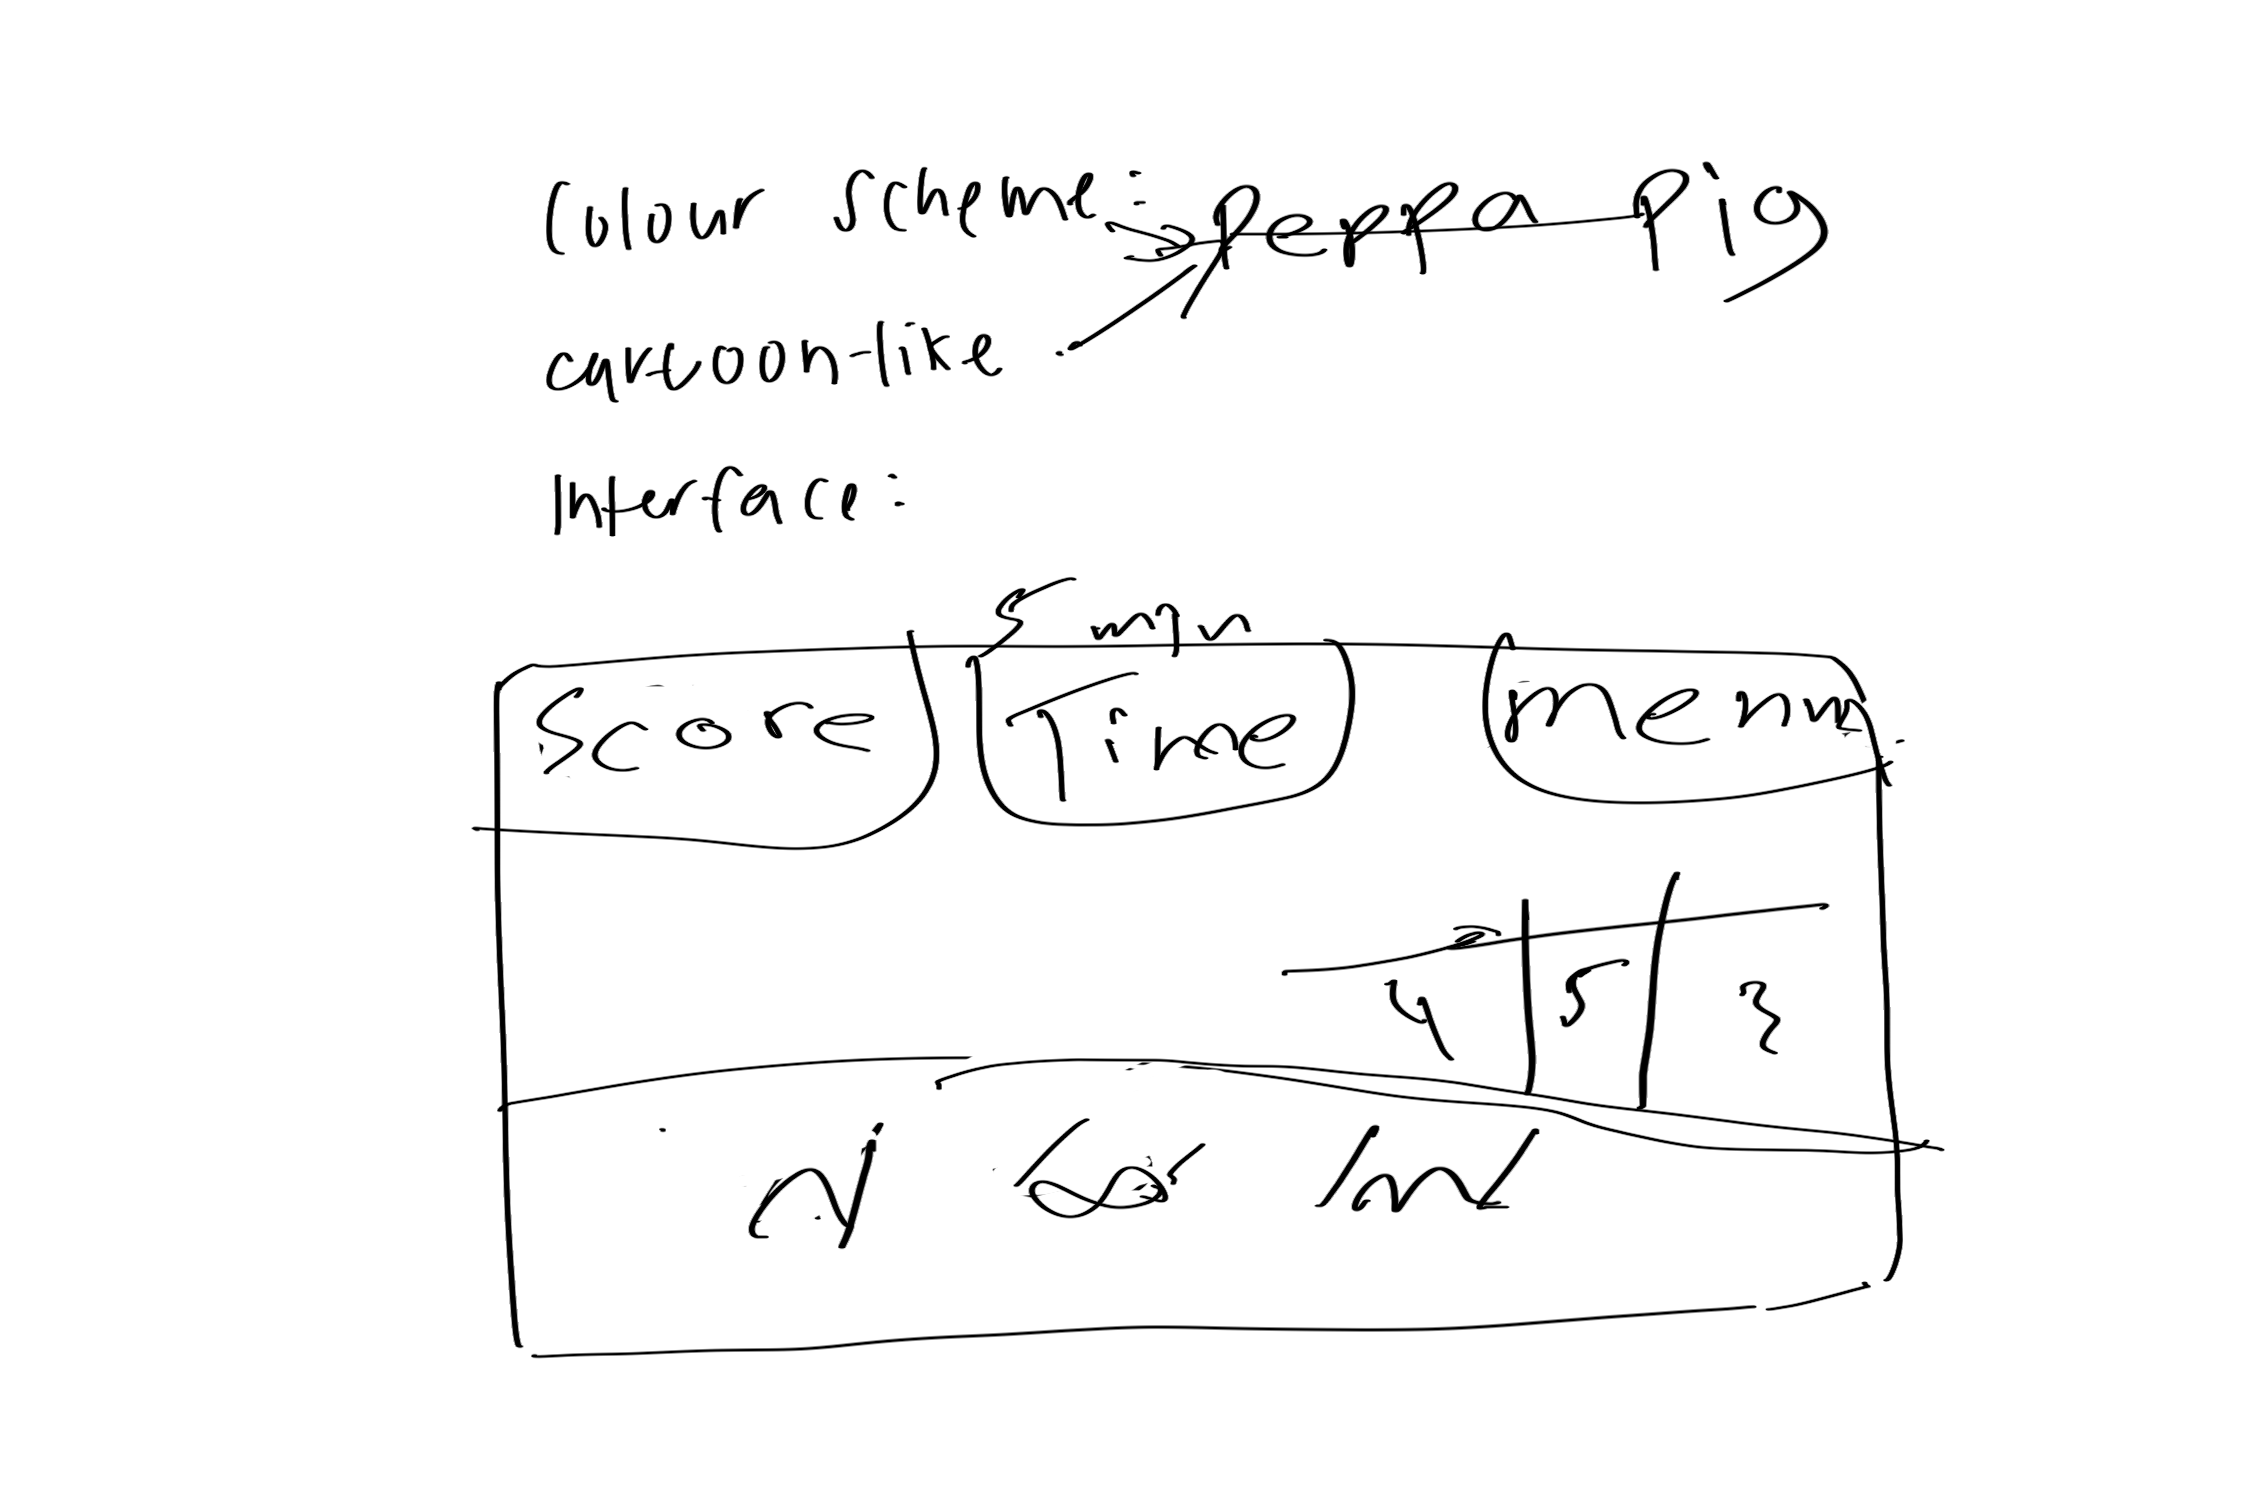 Colour scheme: Peppa Pig
cartoon-like
Interface:
5 min
Score Time menu
4 5 3